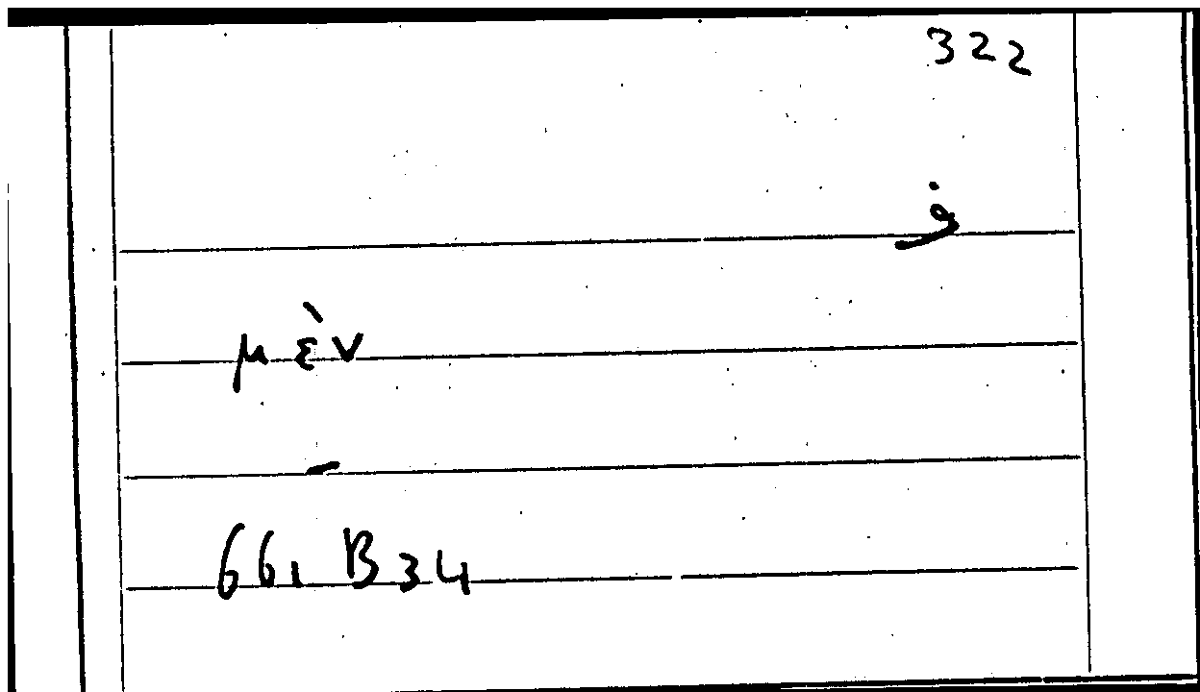 322
ف
μὲν
–
661 B34